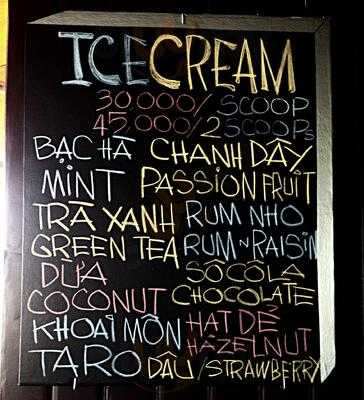 ICECREAM
30.000/SCOOP
45.000/2 SCOOPS
BẠC HÀ CHANH DÂY
MINT PASSION FRUIT
TRÀ XANH RUM NHO
GREEN TEA RUM N RAISIN
DỪA SÔCÔLA
COCONUT CHOCOLATE
KHOAI MÔN HẠT DẺ
TARO HAZELNUT
DÂU/STRAWBERRY